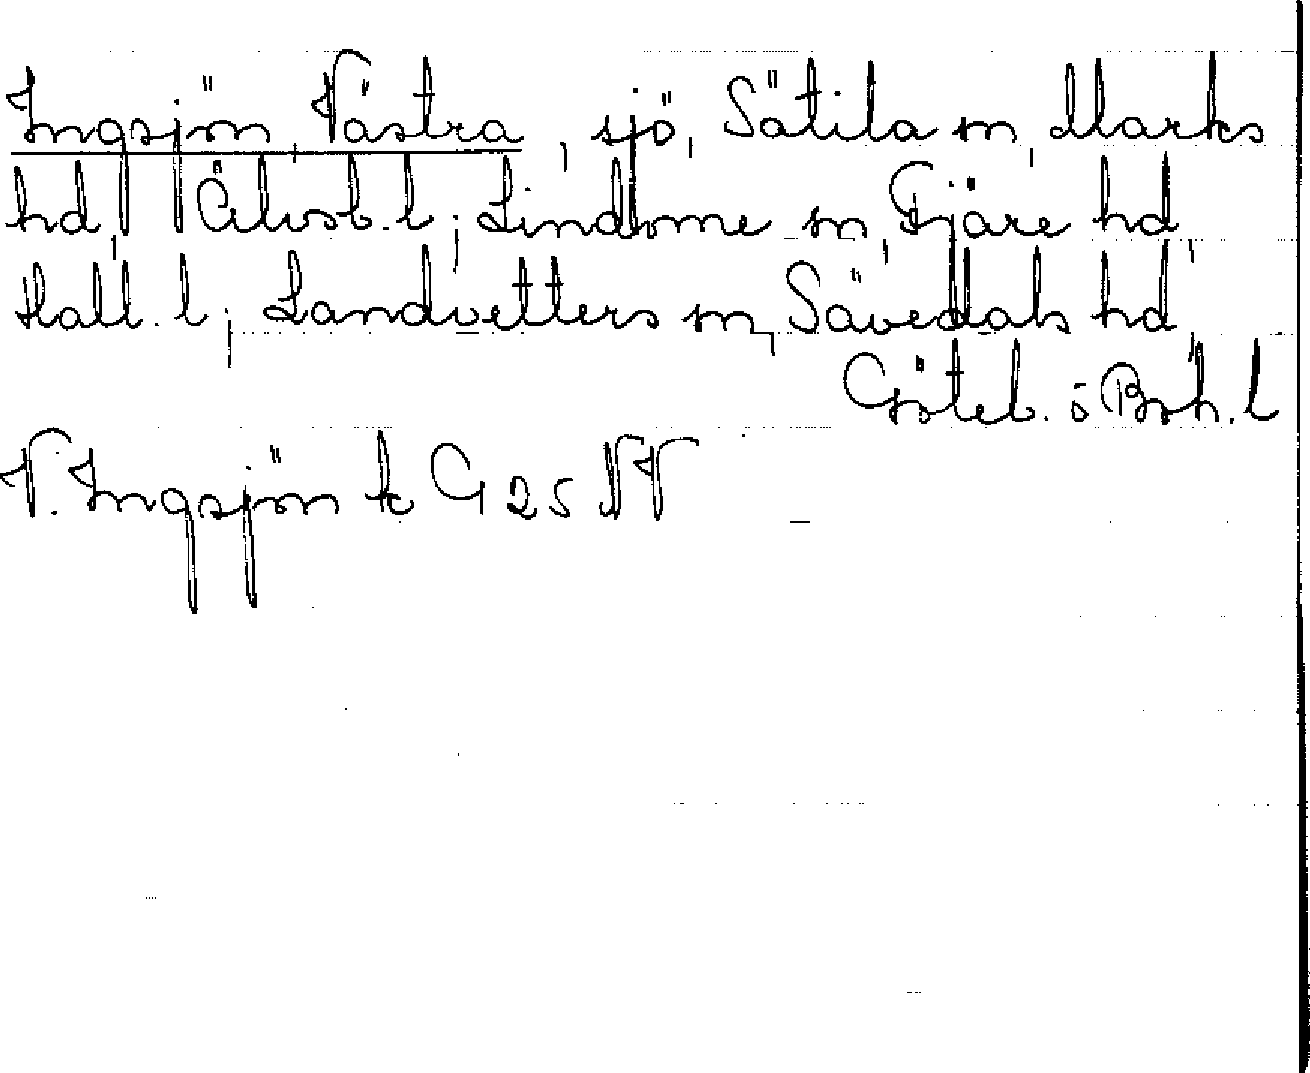 Ingsjön, Västra, sjö, Sätila sn, Marks
hd, Älvsb. l; Lindome sn, Fjäre hd,
Hall. l; Landvetters sn, Sävedals hd,
Göteb. o Boh. l
V. Ingsjön k G 25 NV